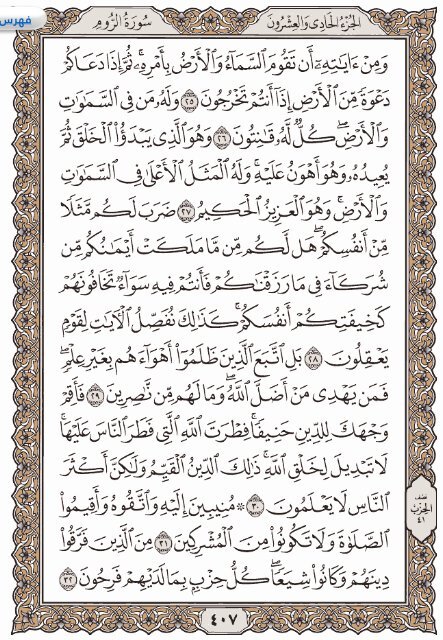 فهرس
سُورَةُ الرُّومِ
الجُزْءُ الحَادِي وَالعِشْرُونَ
وَمِنْ ءَايَٰتِهِۦٓ أَن تَقُومَ ٱلسَّمَآءُ وَٱلْأَرْضُ بِأَمْرِهِۦ ۚ ثُمَّ إِذَا دَعَاكُمْ
دَعْوَةً مِّنَ ٱلْأَرْضِ إِذَآ أَنتُمْ تَخْرُجُونَ ٢٥ وَلَهُۥ مَن فِى ٱلسَّمَٰوَٰتِ
وَٱلْأَرْضِ ۖ كُلٌّ لَّهُۥ قَٰنِتُونَ ٢٦ وَهُوَ ٱلَّذِى يَبْدَؤُا۟ ٱلْخَلْقَ ثُمَّ
يُعِيدُهُۥ وَهُوَ أَهْوَنُ عَلَيْهِ ۚ وَلَهُ ٱلْمَثَلُ ٱلْأَعْلَىٰ فِى ٱلسَّمَٰوَٰتِ
وَٱلْأَرْضِ ۚ وَهُوَ ٱلْعَزِيزُ ٱلْحَكِيمُ ٢٧ ضَرَبَ لَكُم مَّثَلًا
مِّنْ أَنفُسِكُمْ ۖ هَل لَّكُم مِّن مَّا مَلَكَتْ أَيْمَٰنُكُم مِّن
شُرَكَآءَ فِى مَا رَزَقْنَٰكُمْ فَأَنتُمْ فِيهِ سَوَآءٌ تَخَافُونَهُمْ
كَخِيفَتِكُمْ أَنفُسَكُمْ ۚ كَذَٰلِكَ نُفَصِّلُ ٱلْءَايَٰتِ لِقَوْمٍ
يَعْقِلُونَ ٢٨ بَلِ ٱتَّبَعَ ٱلَّذِينَ ظَلَمُوٓا۟ أَهْوَآءَهُم بِغَيْرِ عِلْمٍ ۖ
فَمَن يَهْدِى مَنْ أَضَلَّ ٱللَّهُ ۖ وَمَا لَهُم مِّن نَّٰصِرِينَ ٢٩ فَأَقِمْ
وَجْهَكَ لِلدِّينِ حَنِيفًا ۚ فِطْرَتَ ٱللَّهِ ٱلَّتِى فَطَرَ ٱلنَّاسَ عَلَيْهَا ۚ
لَا تَبْدِيلَ لِخَلْقِ ٱللَّهِ ۚ ذَٰلِكَ ٱلدِّينُ ٱلْقَيِّمُ وَلَٰكِنَّ أَكْثَرَ
ٱلنَّاسِ لَا يَعْلَمُونَ ٣٠ ۞ مُنِيبِينَ إِلَيْهِ وَٱتَّقُوهُ وَأَقِيمُوا۟
ٱلصَّلَوٰةَ وَلَا تَكُونُوا۟ مِنَ ٱلْمُشْرِكِينَ ٣١ مِنَ ٱلَّذِينَ فَرَّقُوا۟
دِينَهُمْ وَكَانُوا۟ شِيَعًا ۖ كُلُّ حِزْبٍۭ بِمَا لَدَيْهِمْ فَرِحُونَ ٣٢
نصف
الحزب
٤١
٤٠٧